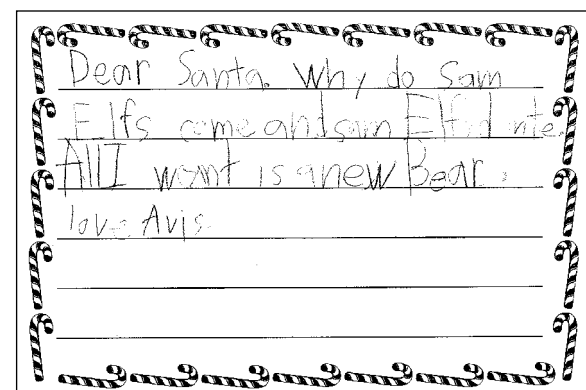 Dear Santa. Why do Sam
Elfs come and sam Elfs d nte.
All I want is a new Bear.
love Avis.